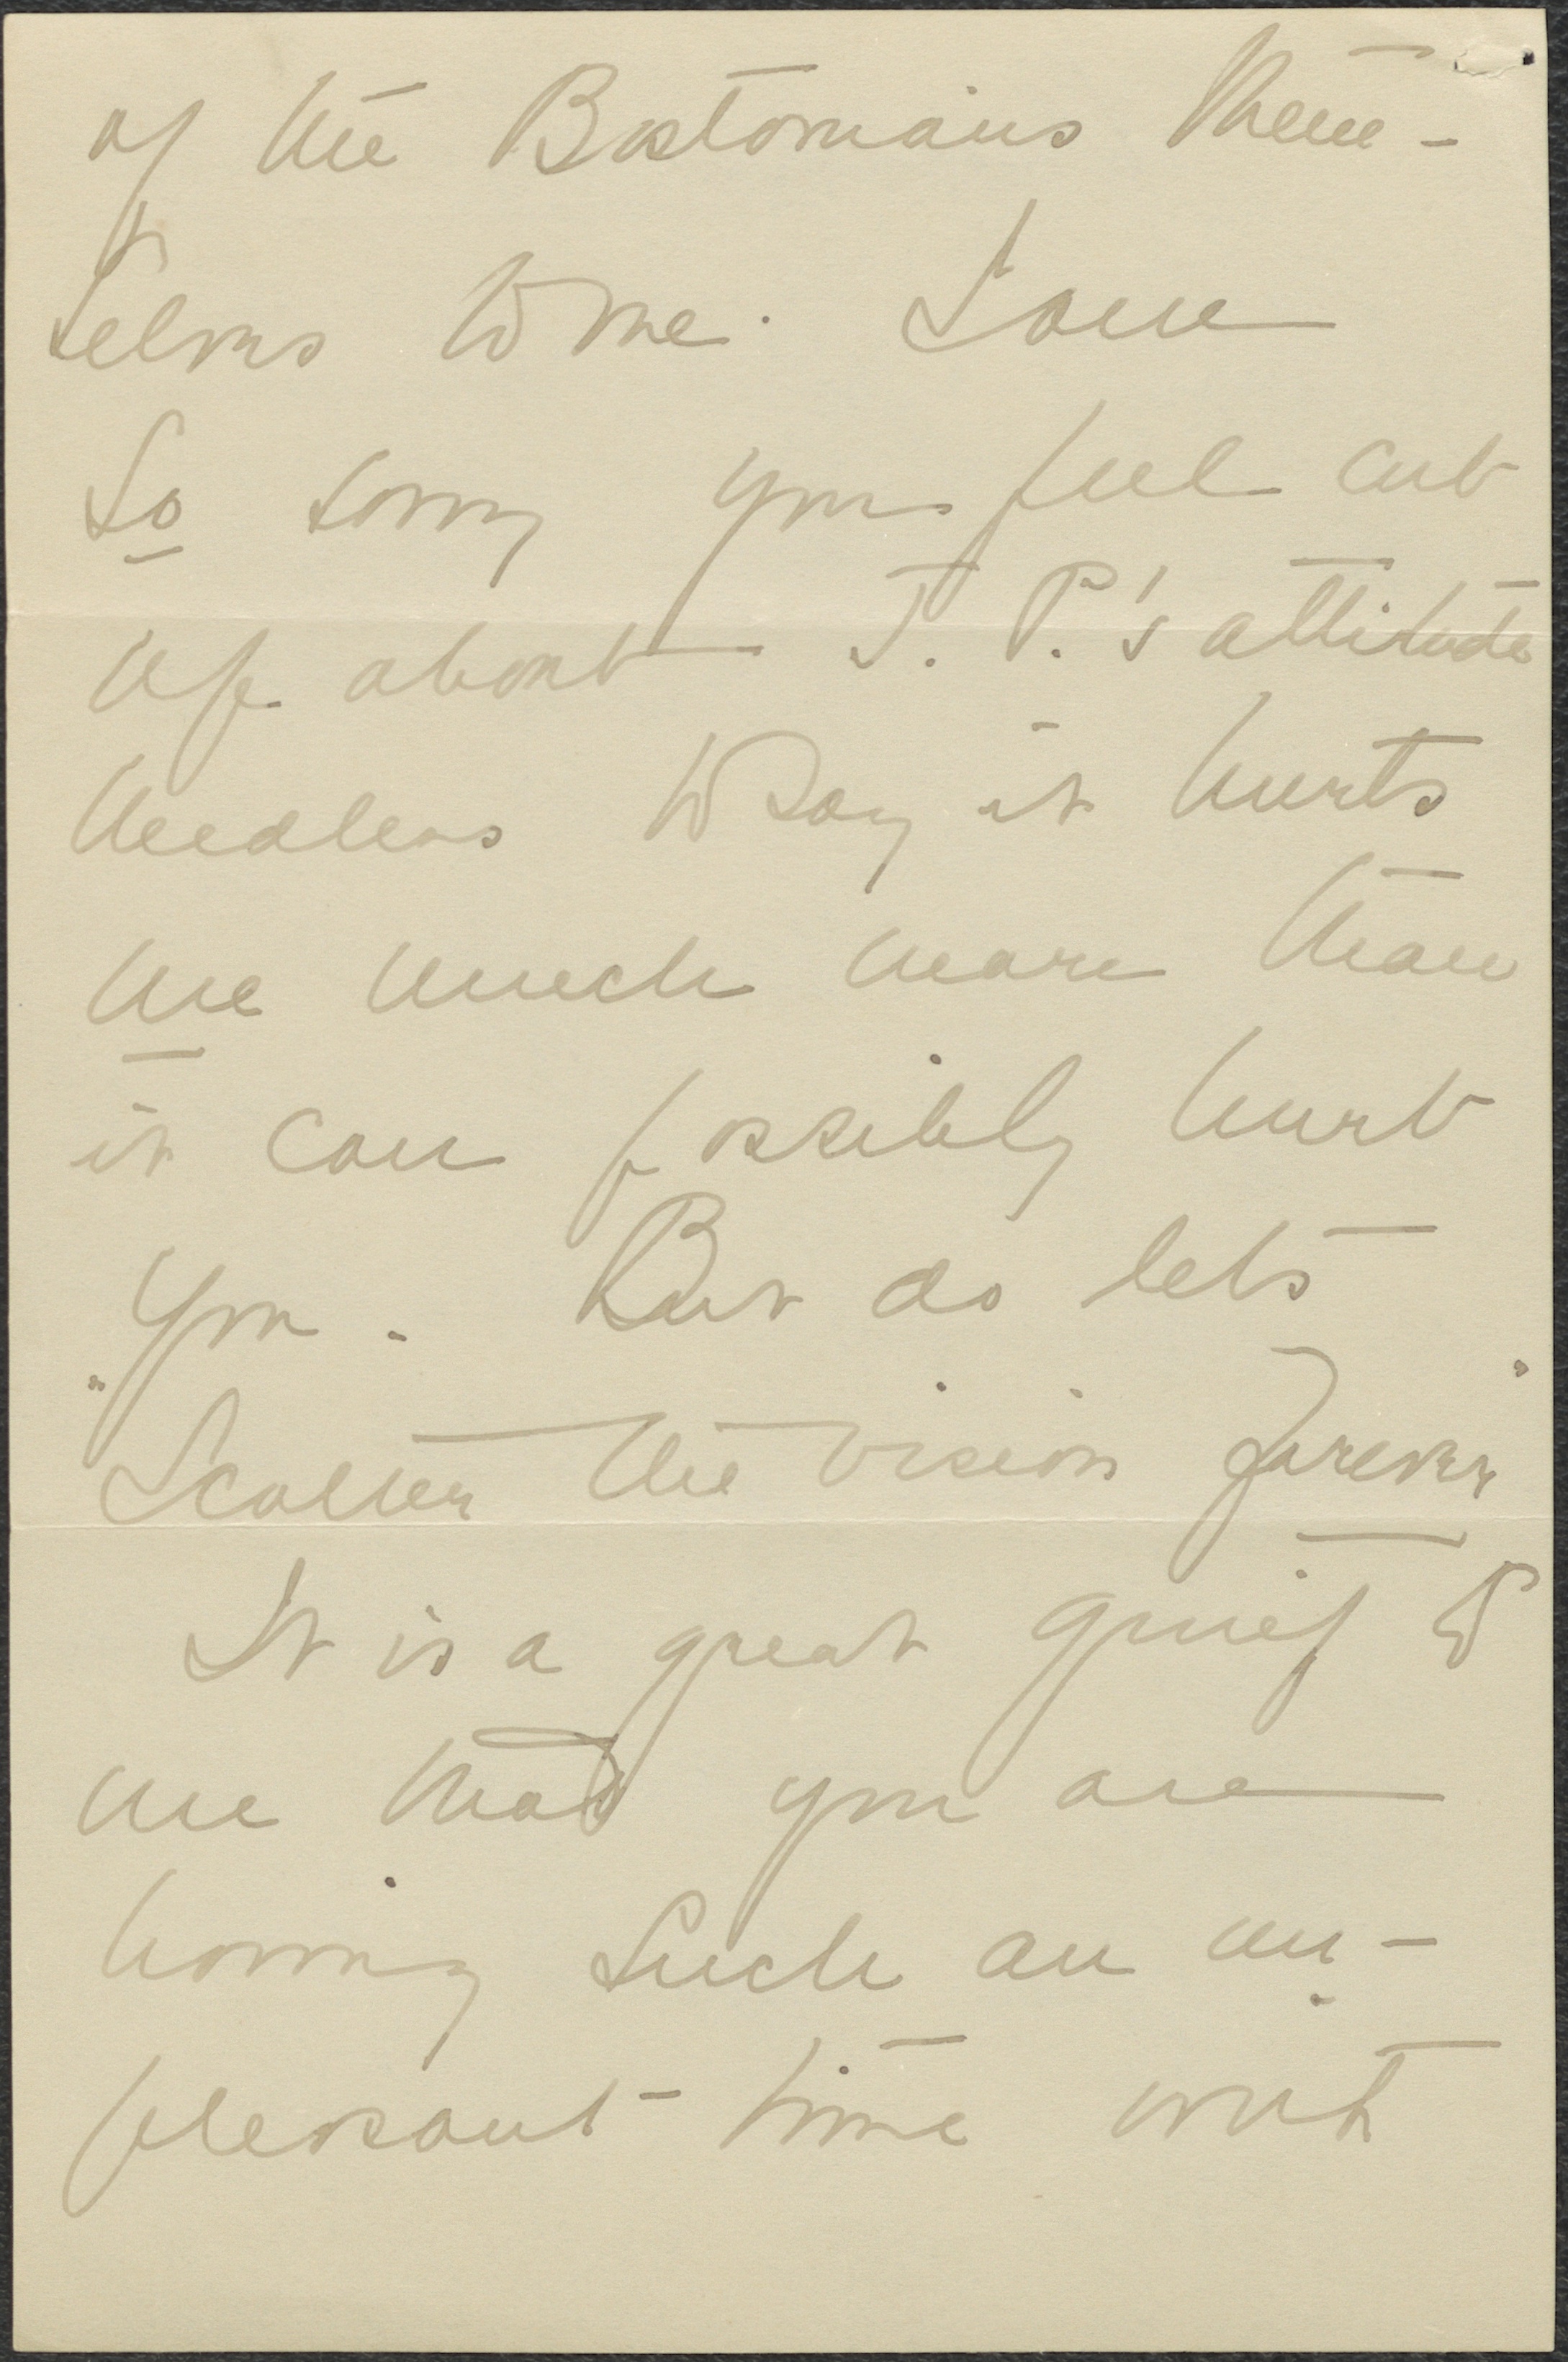 of the Bostonians them-
selves to me. I am
so sorry you feel cut
up about J. P.'s attitude
needless to say it hurts
me much more than
it can possibly hurt
you. But do lets
"scatter the vision forever"
It is a great grief to
me that you are
having such an un-
pleasant time with